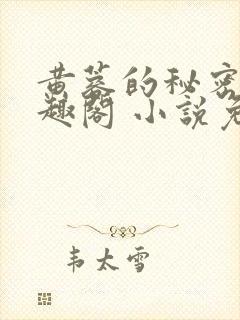 黄蓉的秘密
趣阁 小说免
韦太雪